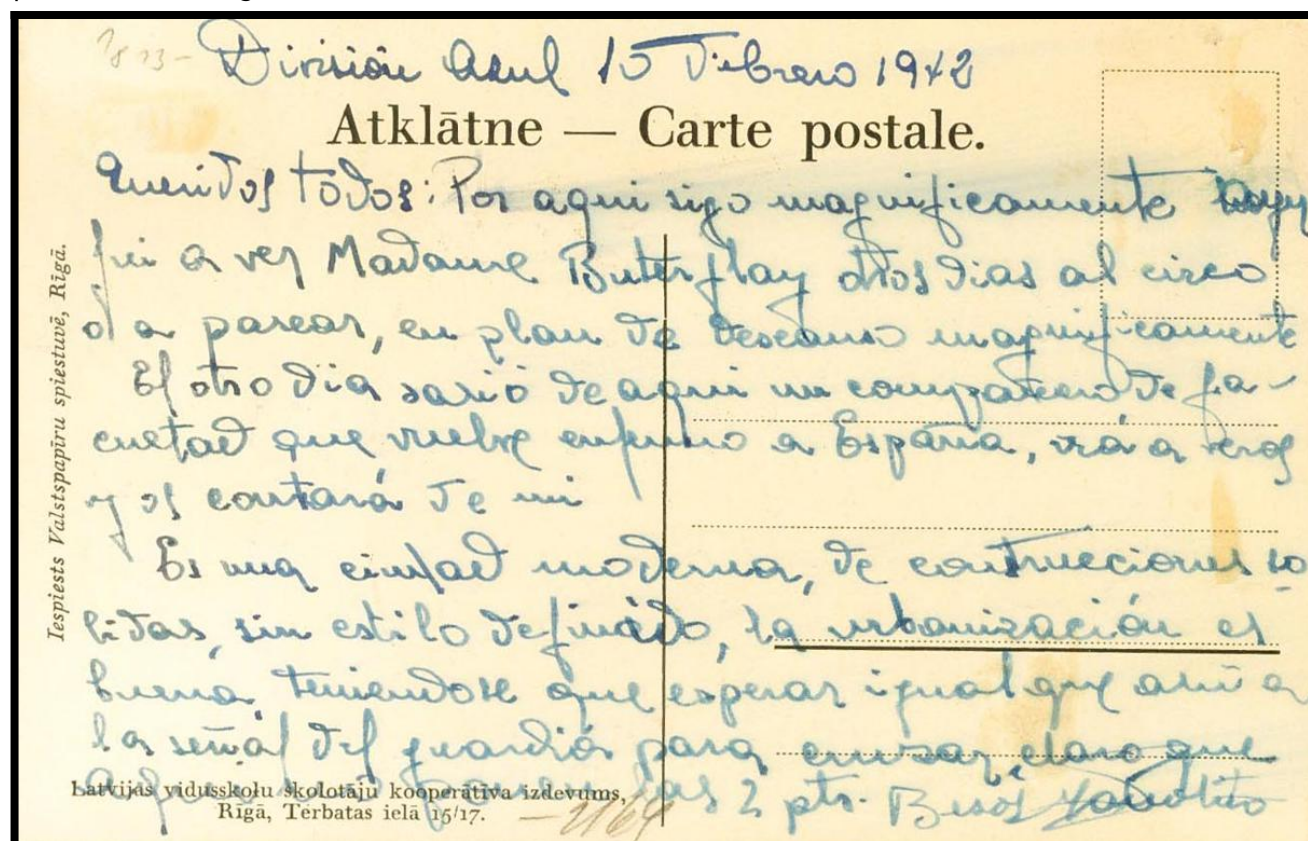 División Asul 15 Febrero 1942
Atklātne — Carte postale.
Queridos todos: Por aqui sigo magnificamente
fui a ver Madame Buterflay otros dias al circo
o a pasear, en plan de descanso magnificamente
El otro dia sarió de aqui un compañero de fa-
cultad que vuelve enfermo a España, irá a veros
y os contará de mi
Es una ciudad moderna, de construcciones so
lidas, sin estilo definido, la urbanización es
buena, teniendose que esperar igual que ahi a
la señal del guardia para cruzar, claro que
las 2 pts. Besos
Iespiests Valstspapīru spiestuvē, Rīgā.
Latvijas vidusskolu skolotāju kooperātīva izdevums,
Rīgā, Tērbatas ielā 15/17.